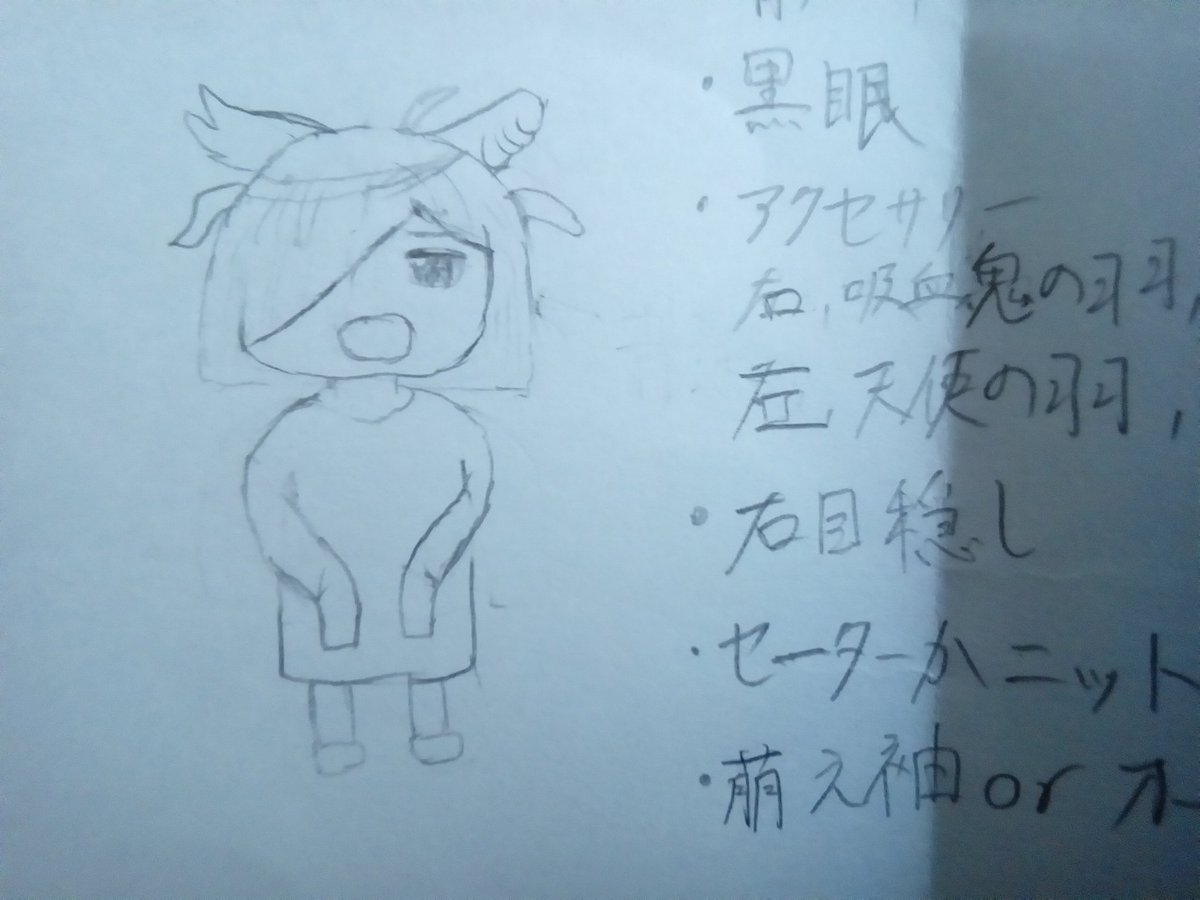 ・黒眼
・アクセサリー
右、吸血鬼の羽
左、天使の羽、
・右目隠し
・セーターかニット
・萌え袖or オー